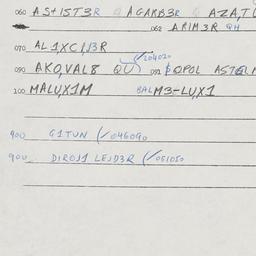 060 AS+IST3R @ AGARB3R @ AZA,T
062 ARIM3R QH
070 AL1XCIJ3R
✓204020
090 AKO,VAL8 QU 091 POPOL AST
100 MALUX1M BALM3-LUX1
900 G1TUN (✓046090
900 DIROS1 LEJD3R (✓051050